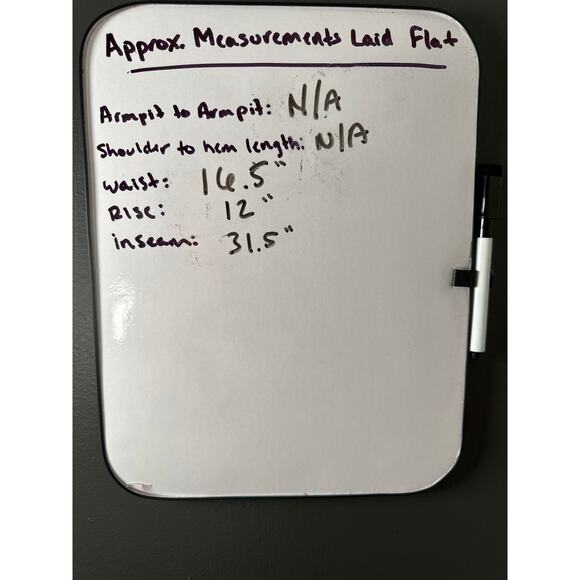 Approx. Measurements Laid Flat
Armpit to Armpit: N/A
Shoulder to hem length: N/A
Waist: 16.5"
Rise: 12"
inseam: 31.5"